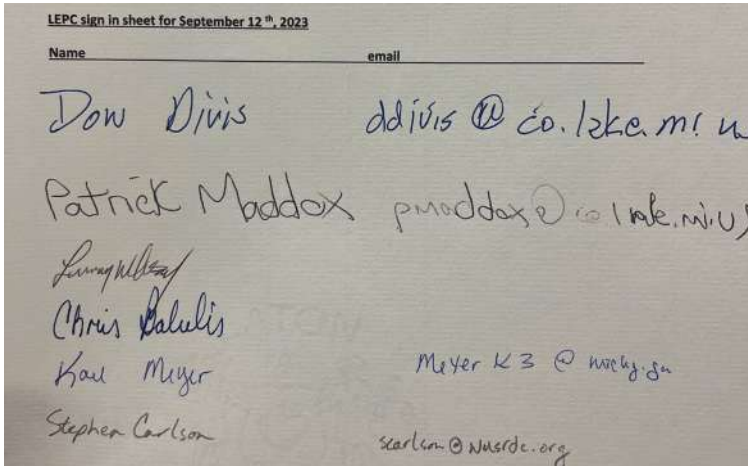 LEPC sign in sheet for September 12 th, 2023
Name email
Dow Divis ddivis @ co.lake.mi. u
Patrick Maddox pmaddox@co.lake.mi.us
Chris Balulis
Meyer Meyer K3 @
Stephen Carlson scarlson@wmsrdc.org